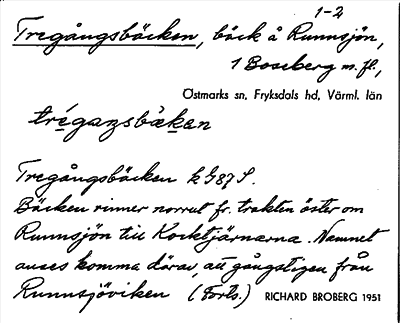 1-2
Tregångsbäcken, bäck å Runnsjön,
1 Boseberg m. fl.,
Östmarks sn, Fryksdals hd, Värml. län
trégaŋsbäkan
Tregångsbäcken k G87 S.
Bäcken rinner norrut fr. trakten öster om
Runnsjön till Kocktjärnarna. Namnet
anses komma därav, att gångstigen från
Runnsjöviken (Forts.) RICHARD BROBERG 1951